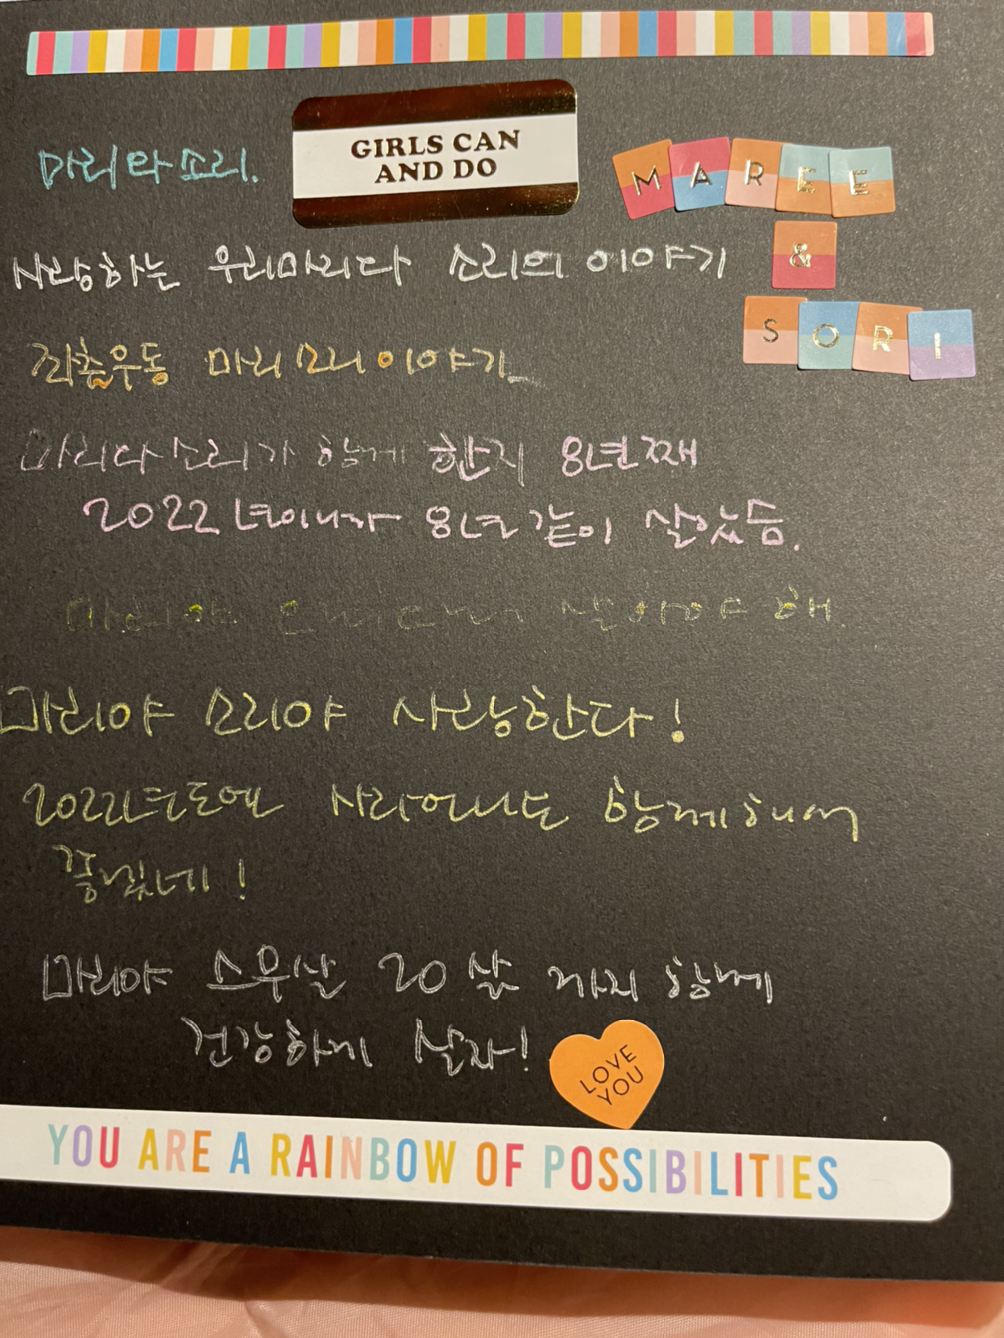 마리와소리.
GIRLS CAN
AND DO
MAREE
&
SORI
사랑하는 우리마리와 소리의 이야기
좌충우돌 마리 소리 이야기
마리와 소리가 함께 한지 8년째
2022년이니까 8년 같이 살았음.
살아야 해
마리야 소리야 사랑한다!
2022년도에 함께해서
마리야 스무살 20살 까지 함께
건강하게 살자!
LOVE
YOU
YOU ARE A RAINBOW OF POSSIBILITIES